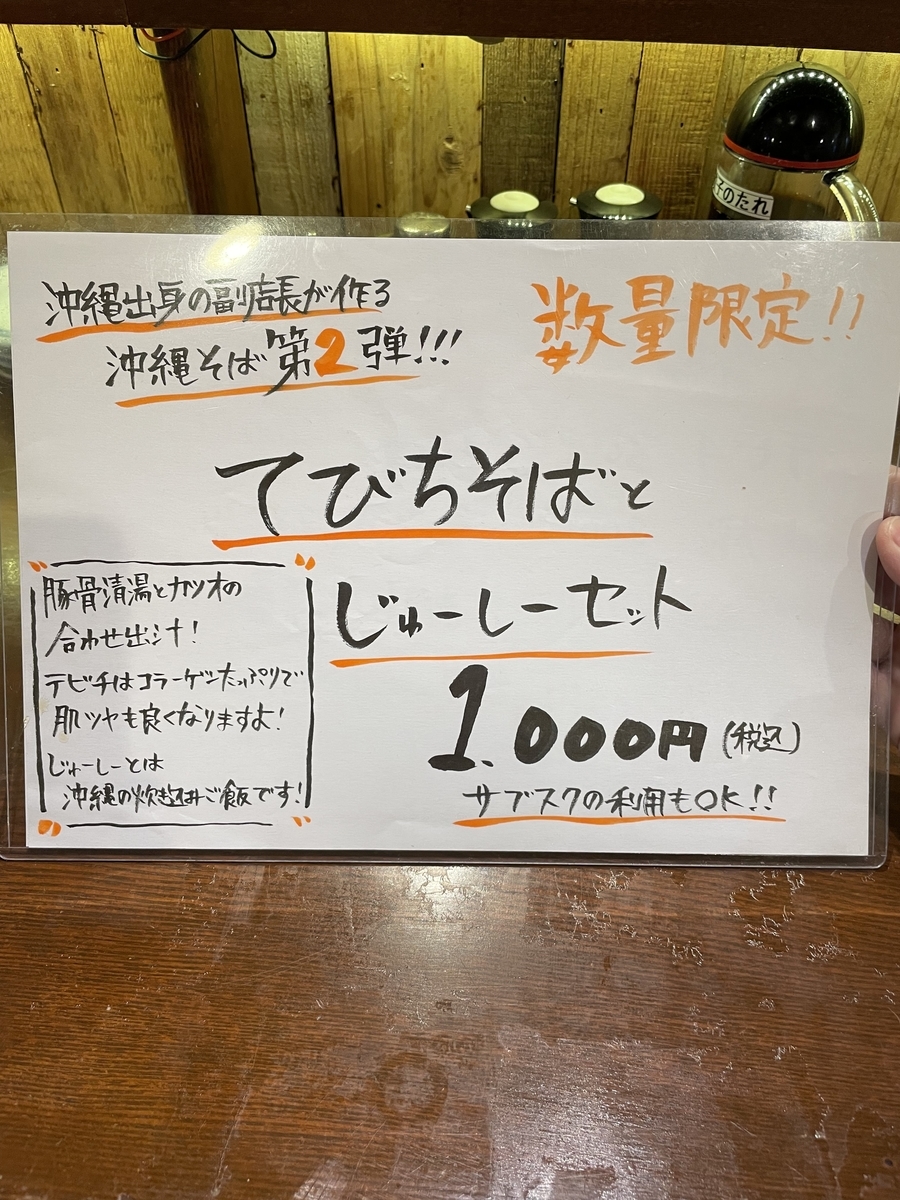 子のたれ
沖縄出身の副店長が作る
沖縄そば第2弾!!!
数量限定!!
てびちそばと
じゅーしーセット
1.000円(税込)
サブスクの利用もOK!!
豚骨清湯とカツオの
合わせ出汁!
テビチはコラーゲンたっぷりで
肌ツヤも良くなりますよ!
じゅーしーとは
沖縄の炊き込みご飯です!